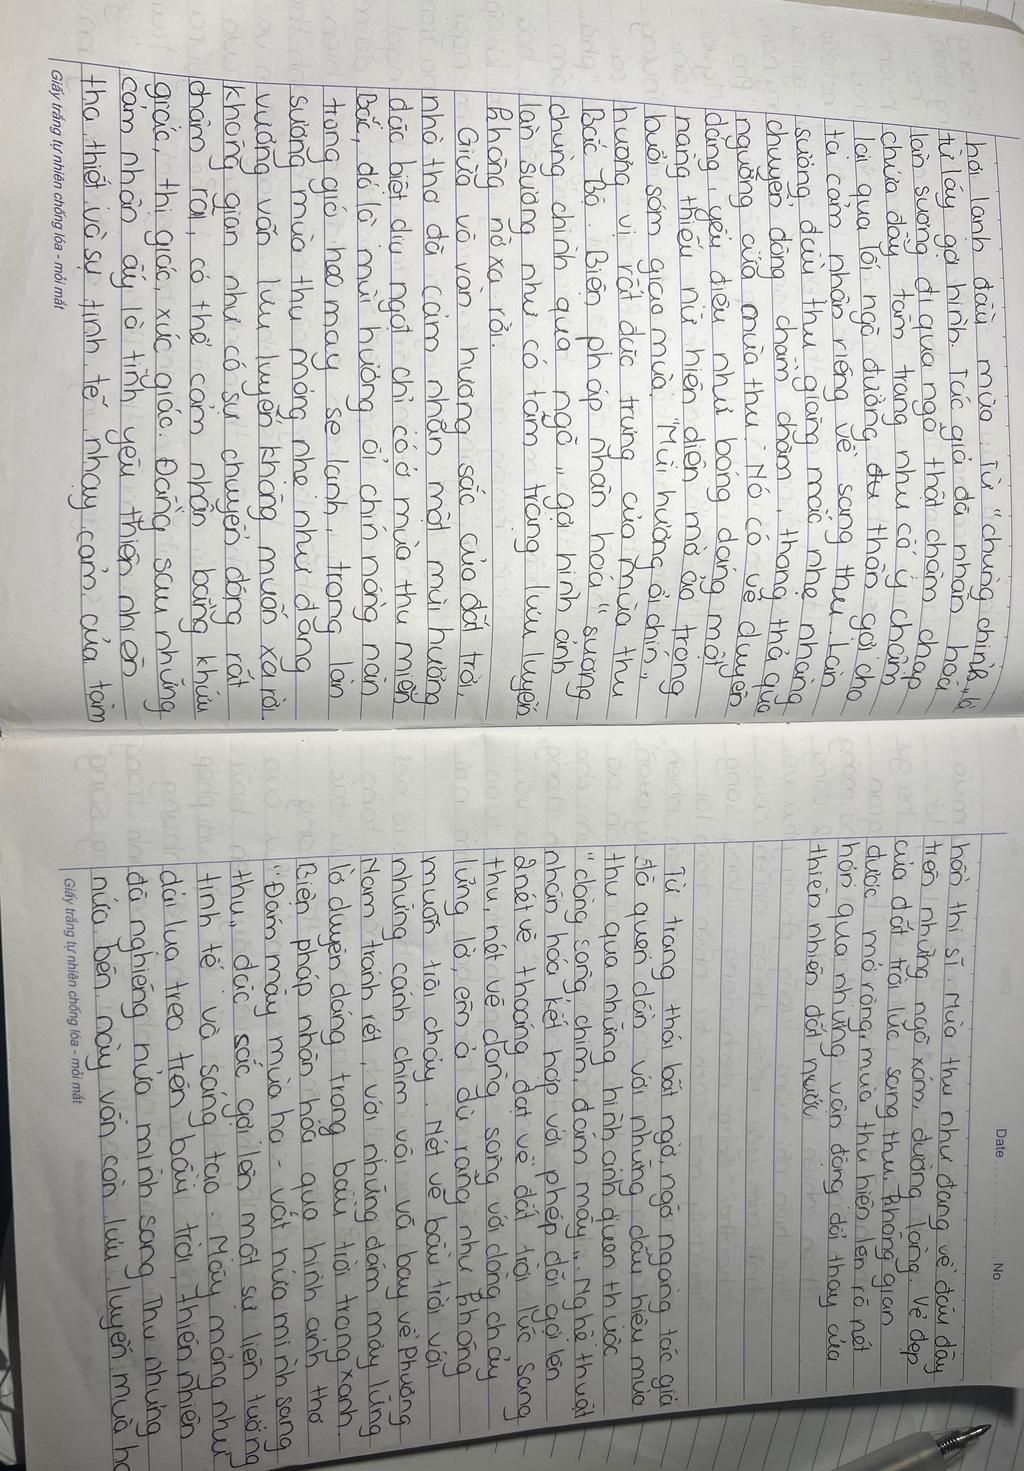 hơi lạnh đầu mùa. Từ "chùng chình" là
từ láy gợi hình. Tác giả đã nhân hoá
làn sương đi qua ngõ thật chậm chạp
chứa đầy tâm trạng như cố ý chậm
lại qua lối ngõ đường đu thân gợi cho
ta cảm nhận riêng về sang thu. Làn
sương đưù thu giăng mắc nhẹ nhàng
chuyển động chầm chậm, thong thả qua
ngưỡng cửa mùa thu. Nó có vẻ duyên
dáng, yểu điệu như bóng dáng một
nàng thiếu nữ hiện diện mờ ảo trong
buổi sớm giao mùa. "Mùi hương ổi chín"
hương vị rất đặc trưng của mùa thu
Bắc Bộ. Biện pháp nhân hoá "sương
chùng chình qua ngõ" gợi hình ảnh
làn sương như có tâm trạng lưu luyến
không nỡ xa rời.
Giữa vô vàn hương sắc của đất trời,
nhà thơ đã cảm nhận một mùi hương
đặc biệt dịu ngọt chỉ có ở mùa thu miền
Bắc, đó là mùi hương ổi chín nồng nàn
trong gió heo may se lạnh, trong làn
sương mùa thu mỏng nhẹ như đang
vương vấn lưu luyến không muốn xa rời.
không gian như có sự chuyển động rất
chậm rãi, có thể cảm nhận bằng khứu
giác, thị giác, xúc giác. Đằng sau những
cảm nhận ấy là tình yêu thiên nhiên
tha thiết và sự tinh tế nhạy cảm của tâm
Giấy trắng tự nhiên chống lóa - mỏi mắt
Date No.
hồn thi sĩ. Mùa thu như đang về đâu đây
trên những ngõ xóm, đường làng. Vẻ đẹp
của đất trời lúc sang thu. Không gian
được mở rộng, mùa thu hiện lên rõ nét
hơn qua những vận động đổi thay của
thiên nhiên đất nước
Từ trạng thái bất ngờ, ngỡ ngàng tác giả
đã quen dần với những dấu hiệu mùa
thu qua những hình ảnh quen thuộc
"dòng sông, chim, đám mây"... Nghệ thuật
nhân hóa kết hợp với phép đối gợi lên
2 nét vẽ thoáng đạt về đất trời lúc sang
thu, nét vẽ dòng sông với dòng chảy
lững lờ, êm ả dù rằng như không
muốn trôi chảy. Nét vẽ bầu trời với
những cánh chim vội vã bay về phương
Nam tránh rét, với những đám mây lững
lờ duyên dáng trong bầu trời trong xanh
Biện pháp nhân hóa qua hình ảnh thơ
"Đám mây mùa hạ - vắt nửa mình sang
thu" đặc sắc gợi lên một sự liên tưởng
tinh tế và sáng tạo. Mây mỏng như
dải lụa treo trên bầu trời, thiên nhiên
đã nghiêng nửa mình sang Thu nhưng
nửa bên này vẫn còn lưu luyến mùa hạ
Giấy trắng tự nhiên chống lóa - mỏi mắt